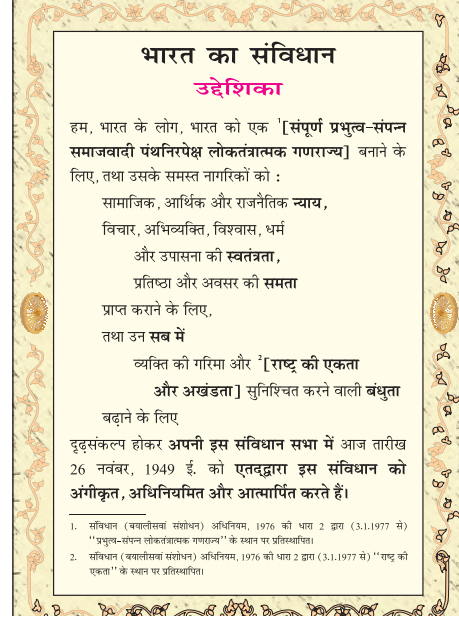 भारत का संविधान
उद्देशिका
हम, भारत के लोग, भारत को एक ¹[संपूर्ण प्रभुत्व-संपन्न
समाजवादी पंथनिरपेक्ष लोकतंत्रात्मक गणराज्य] बनाने के
लिए, तथा उसके समस्त नागरिकों को :
सामाजिक, आर्थिक और राजनैतिक न्याय,
विचार, अभिव्यक्ति, विश्वास, धर्म
और उपासना की स्वतंत्रता,
प्रतिष्ठा और अवसर की समता
प्राप्त कराने के लिए,
तथा उन सब में
व्यक्ति की गरिमा और ²[राष्ट्र की एकता
और अखंडता] सुनिश्चित करने वाली बंधुता
बढ़ाने के लिए
दृढ़संकल्प होकर अपनी इस संविधान सभा में आज तारीख
26 नवंबर, 1949 ई. को एतद्द्वारा इस संविधान को
अंगीकृत, अधिनियमित और आत्मार्पित करते हैं।
1. संविधान (बयालीसवां संशोधन) अधिनियम, 1976 की धारा 2 द्वारा (3.1.1977 से)
"प्रभुत्व-संपन्न लोकतंत्रात्मक गणराज्य" के स्थान पर प्रतिस्थापित।
2. संविधान (बयालीसवां संशोधन) अधिनियम, 1976 की धारा 2 द्वारा (3.1.1977 से) "राष्ट्र की
एकता" के स्थान पर प्रतिस्थापित।